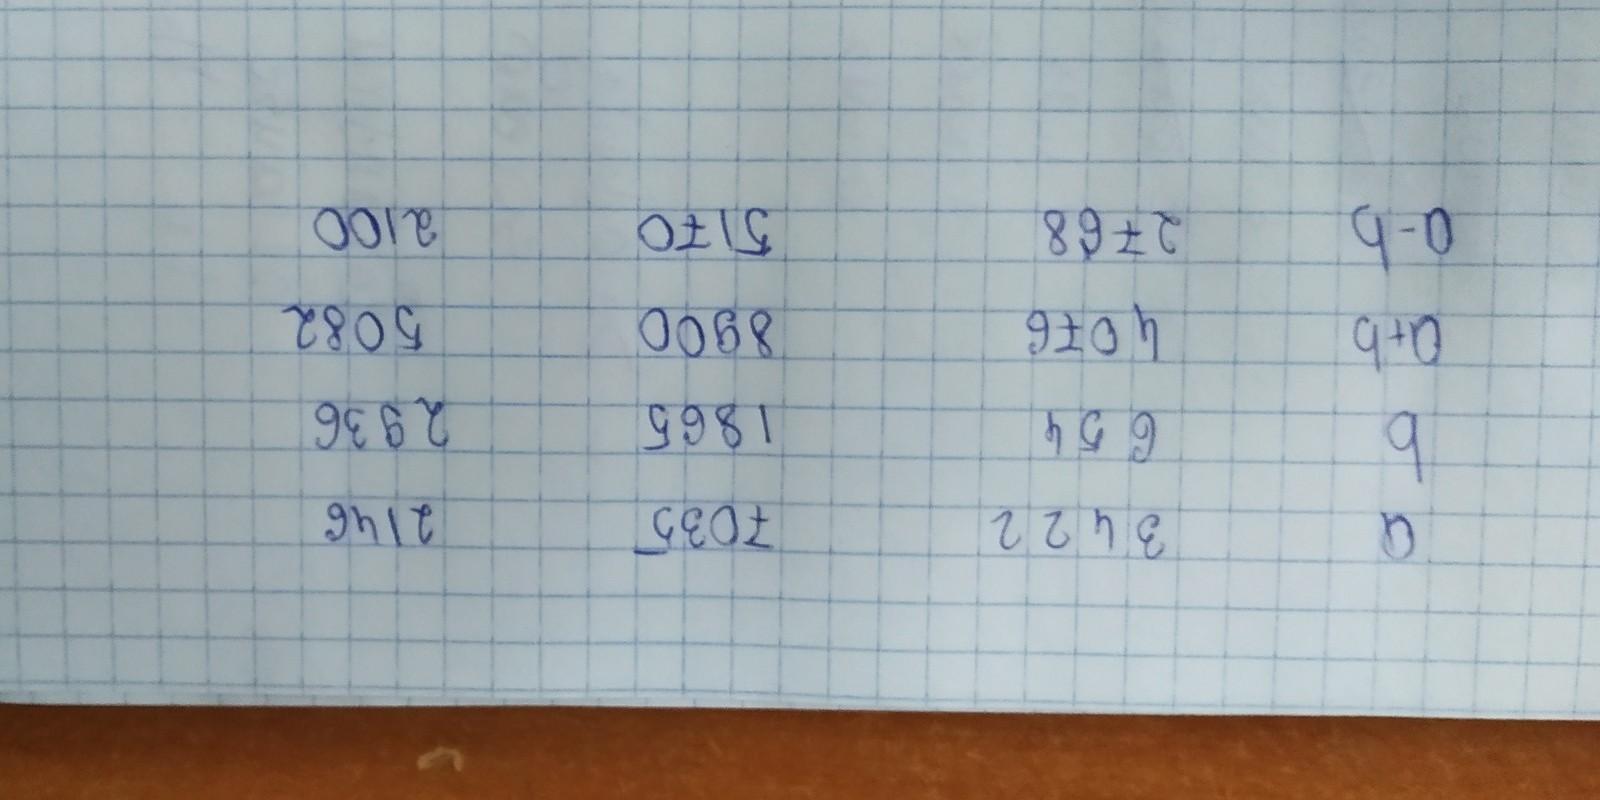 a 3422 7035 2146
b 654 1865 2936
a+b 4076 8900 5082
a-b 2768 5170 2100